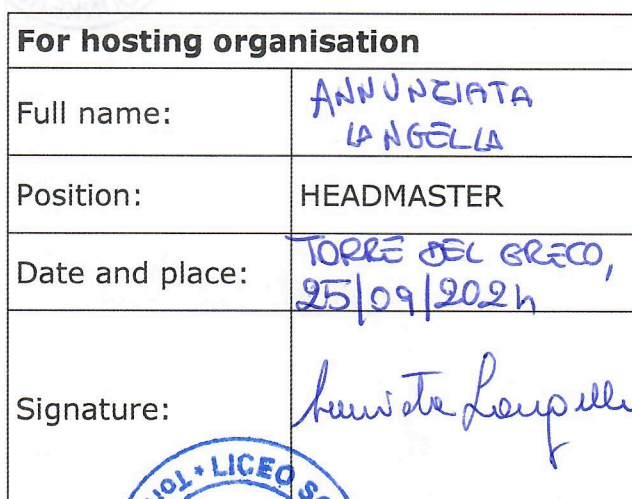 For hosting organisation
Full name:
ANNUNZIATA
LANGELLA
Position:
HEADMASTER
Date and place:
TORRE DEL GRECO,
25/09/2024
Signature:
Annunziata Langella
TOR * LICEO SC